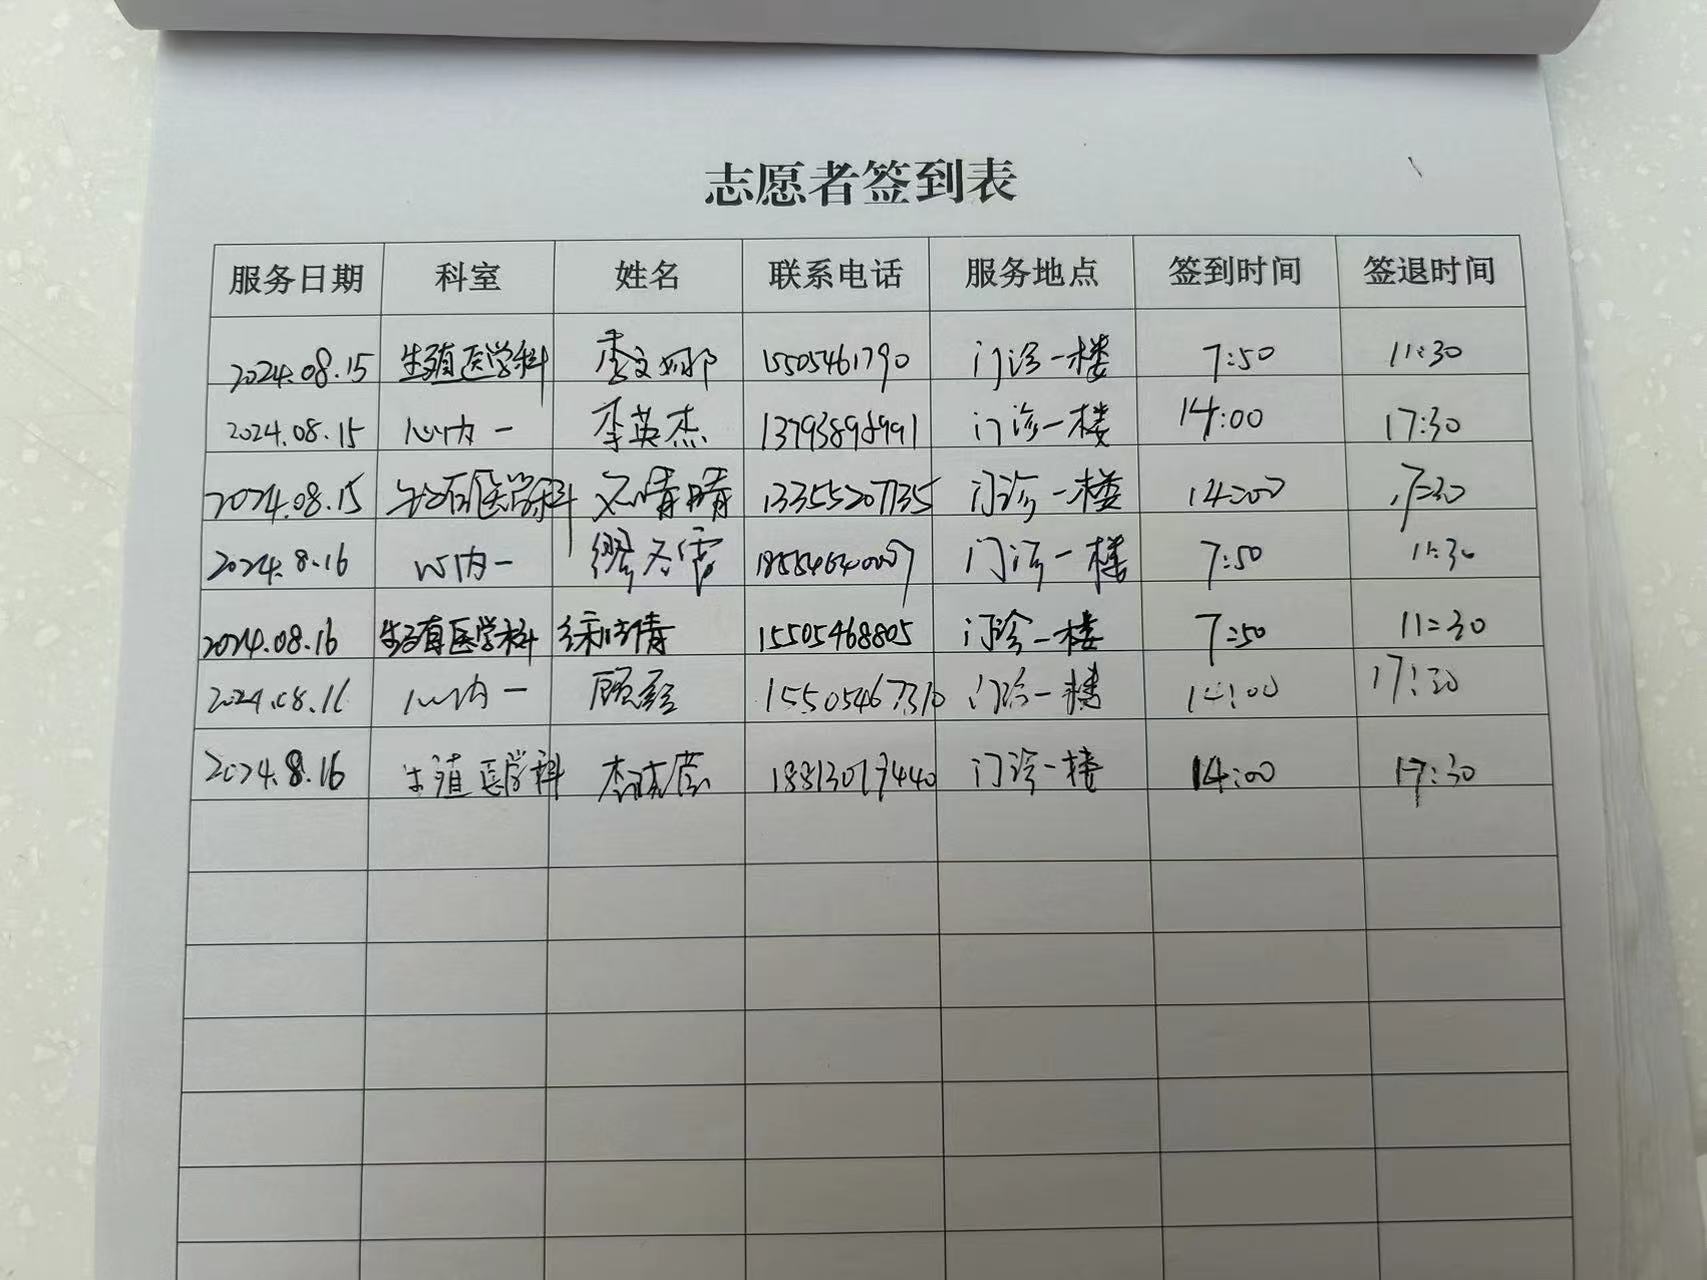 志愿者签到表
服务日期 科室 姓名 联系电话 服务地点 签到时间 签退时间
2024.08.15 生殖医学科 李文娜 15505461790 门诊一楼 7:50 11:30
2024.08.15 心内一 李英杰 门诊一楼 14:00 17:30
2024.08.15 生殖医学科 晴晴 13355207735 门诊一楼 14:00 17:30
2024.8.16 心内一 门诊一楼 7:50 11:30
2024.08.16 生殖医学科 15505468805 门诊一楼 7:50 11:30
2024.08.16 心内一 15505467310 门诊一楼 14:00 17:30
2024.8.16 生殖医学科 门诊一楼 14:00 17:30